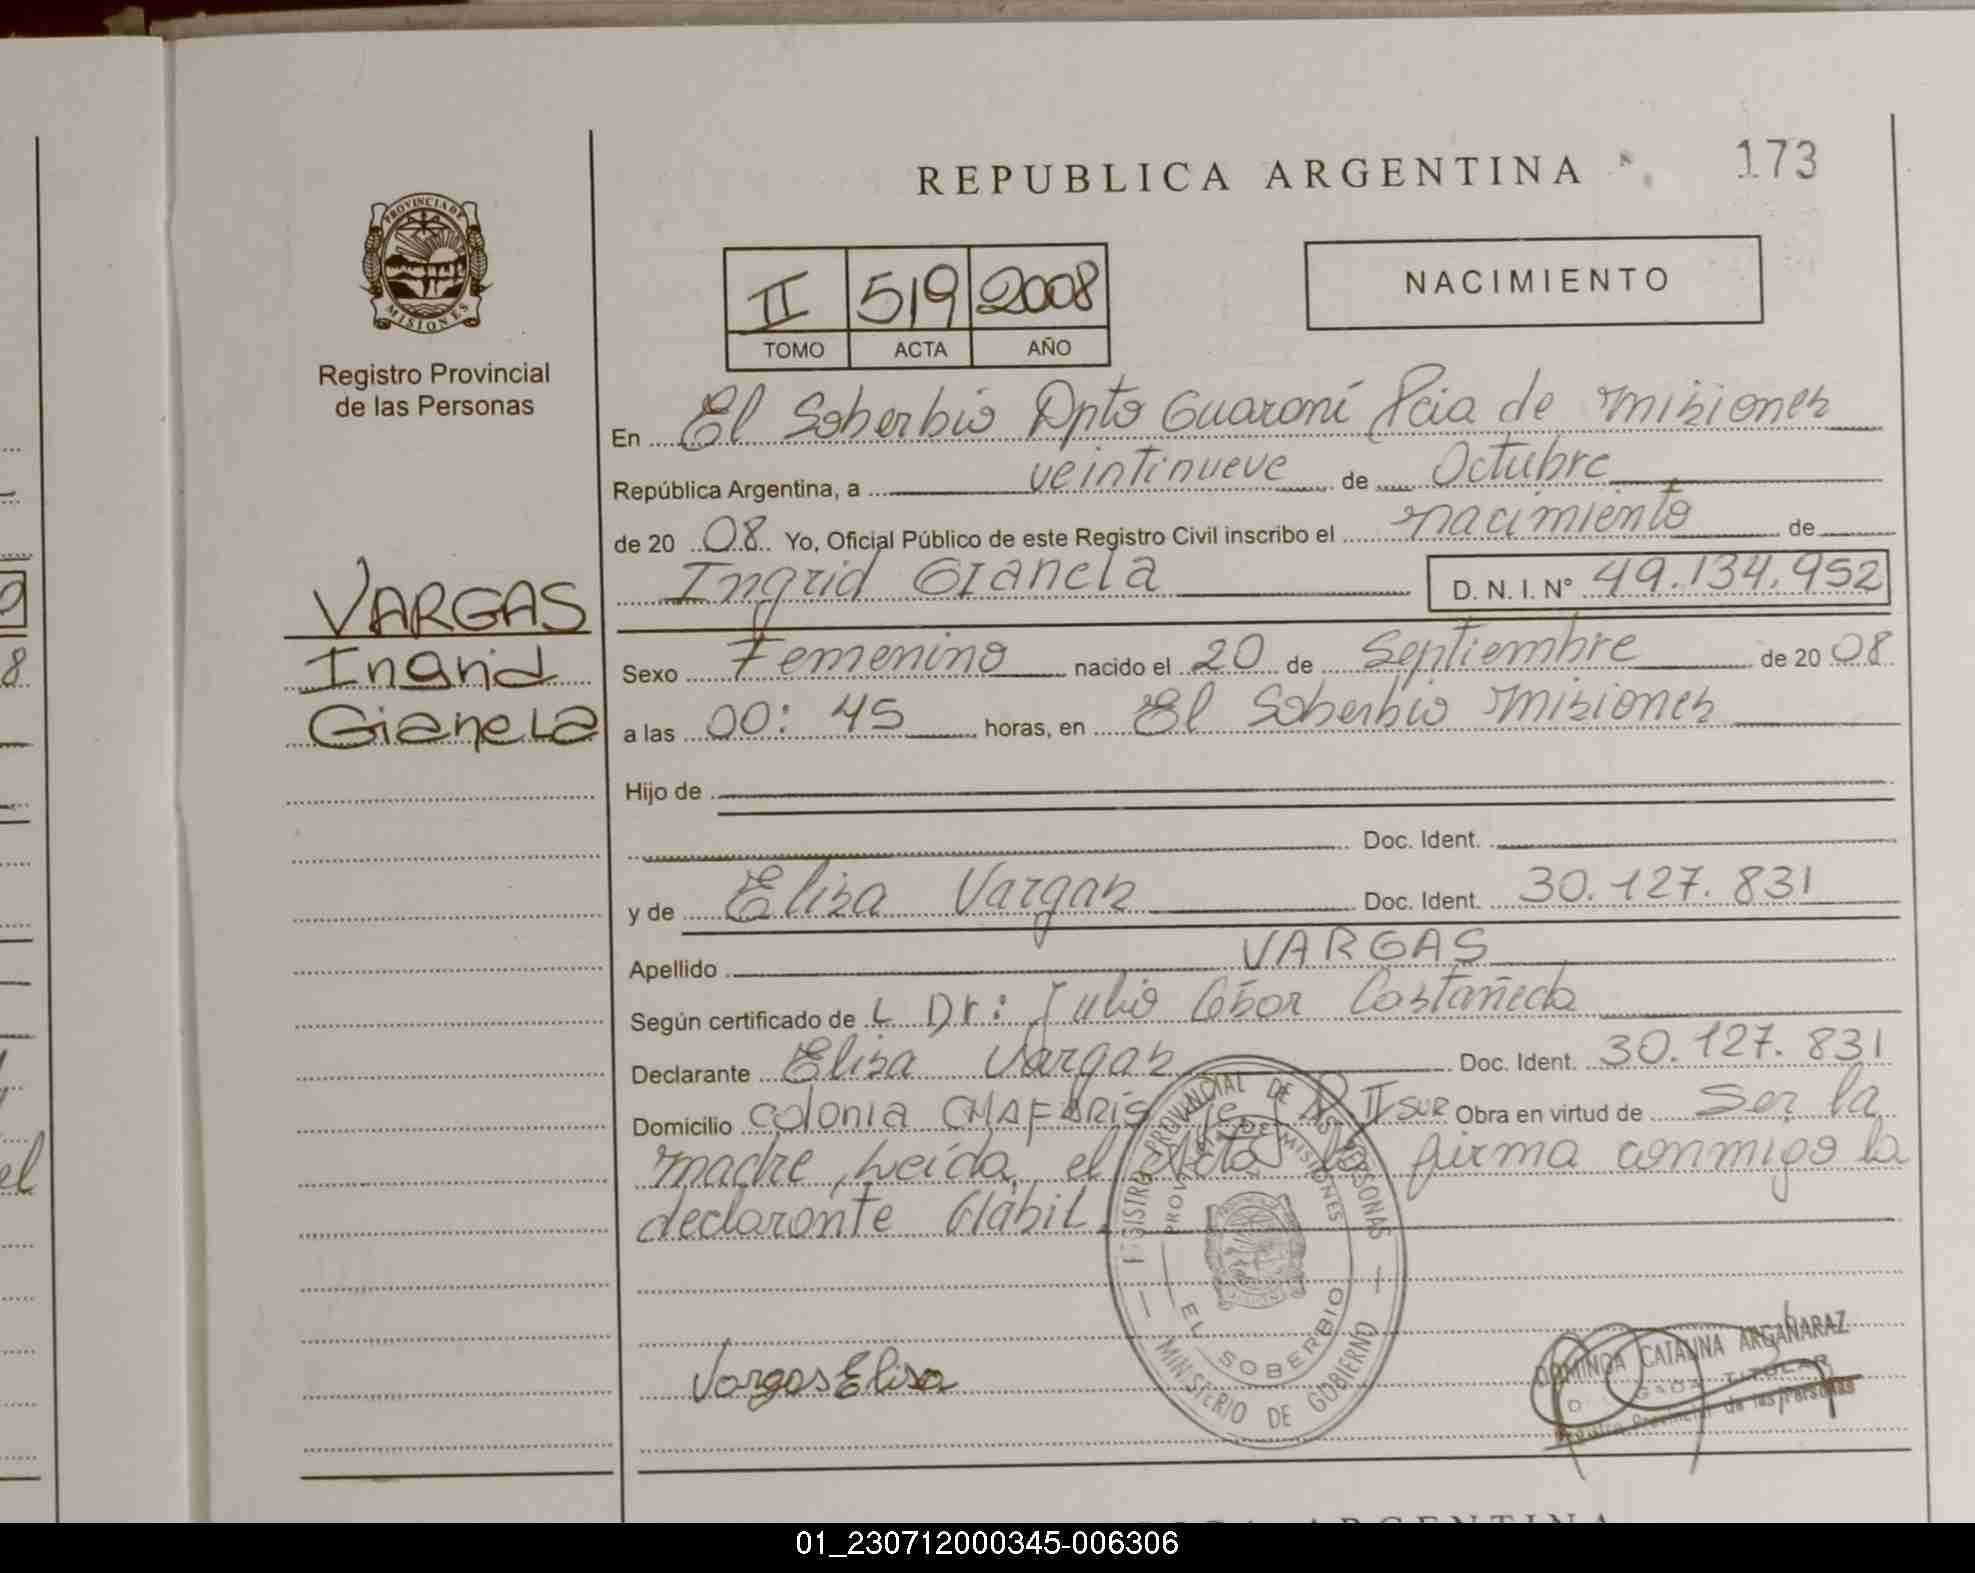 REPUBLICA ARGENTINA
173
PROVINCIA DE
MISIONES
Registro Provincial
de las Personas
II 519 2008
TOMO ACTA AÑO
NACIMIENTO
En El Soberbio Dpto Guaraní Pcia de Misiones
República Argentina, a veintinueve de Octubre
de 20 08 Yo, Oficial Público de este Registro Civil inscribo el nacimiento de
Ingrid Gianela D. N. I. N° 49.134.952
VARGAS
Ingrid
Gianela
Sexo Femenino nacido el 20 de Septiembre de 20 08
a las 00:45 horas, en El Soberbio Misiones
Hijo de
Doc. Ident.
y de Elisa Vargas Doc. Ident. 30.127.831
Apellido VARGAS
Según certificado de L Dr: Julio César Castañeda
Declarante Elisa Vargas Doc. Ident. 30.127.831
Domicilio Colonia CHAFARIS II SUR Obra en virtud de Ser la
madre, Leída el Acta la firma conmigo la
declarante Hábil.
REGISTRO PROVINCIAL DE LAS PERSONAS
PROVINCIA DE MISIONES
EL SOBERBIO
MINISTERIO DE GOBIERNO
Vargas Elisa
DOMINGA CATALINA ARGAÑARAZ
TITULAR
Registro Provincial de las Personas
REPUBLICA ARGENTINA
01_230712000345-006306